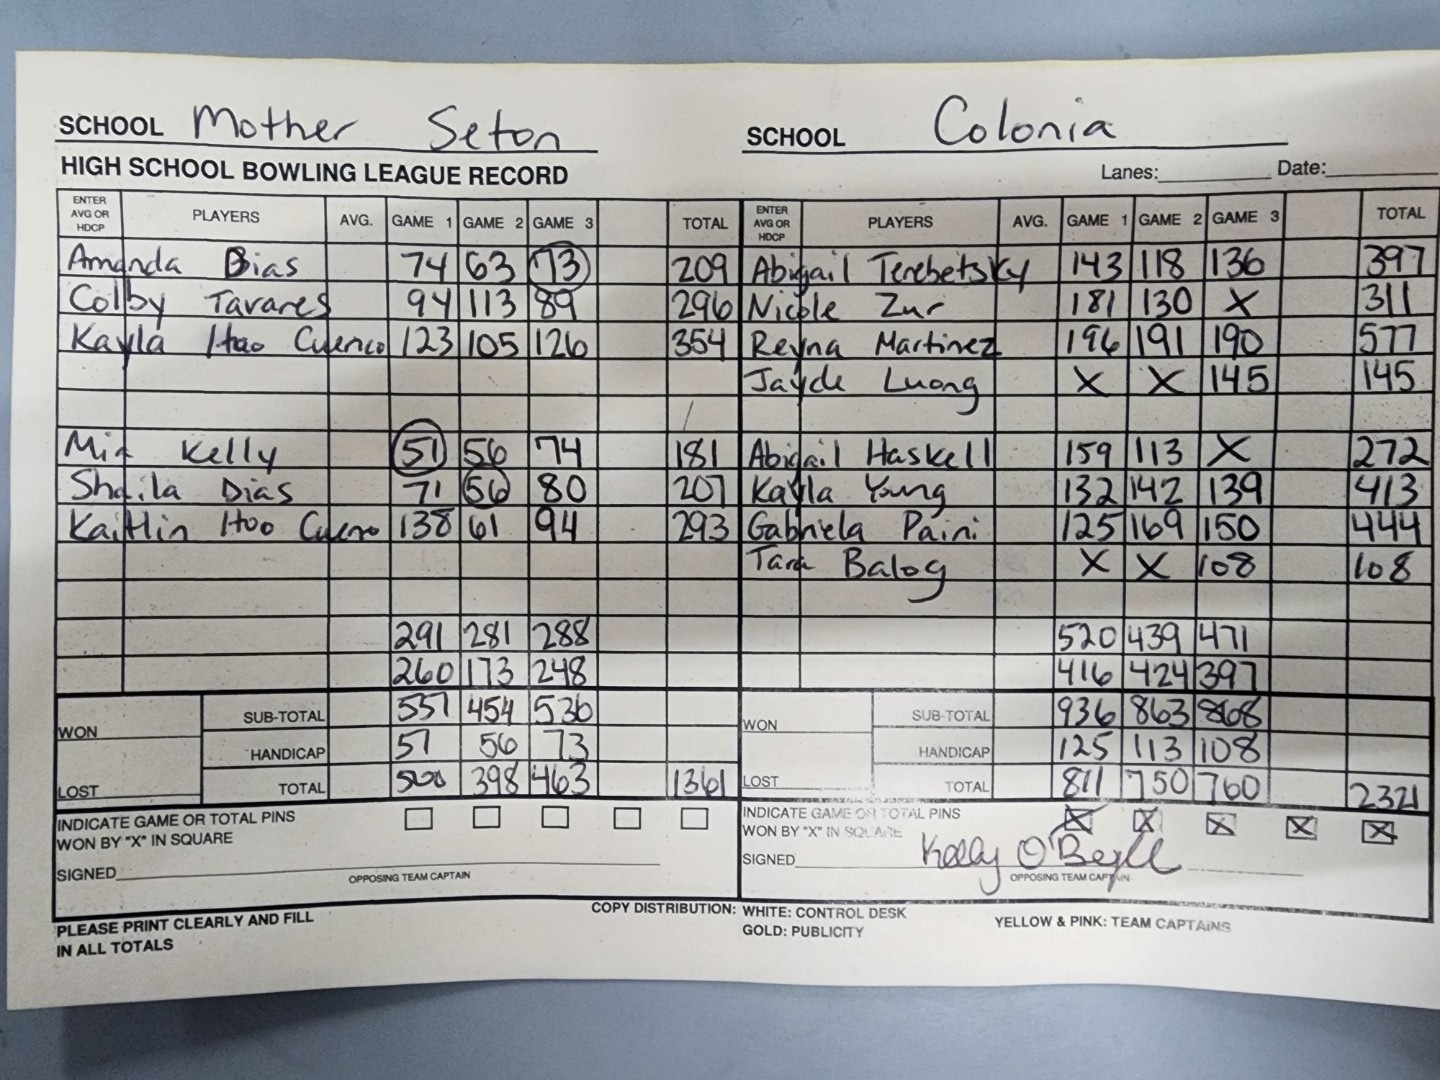 SCHOOL Mother Seton
SCHOOL Colonia
HIGH SCHOOL BOWLING LEAGUE RECORD
Lanes: Date:
ENTER AVG OR HDCP PLAYERS AVG. GAME 1 GAME 2 GAME 3 TOTAL ENTER AVG OR HDCP PLAYERS AVG. GAME 1 GAME 2 GAME 3 TOTAL
Amanda Dias 74 63 73 209 Abigail Terebetsky 143 118 136 397
Colby Tavares 94 113 89 296 Nicole Zur 181 130 X 311
Kayla Hoo Cuenco 123 105 126 354 Reyna Martinez 196 191 190 577
Jayde Luong X X 145 145
Mia Kelly 51 56 74 181 Abigail Haskell 159 113 X 272
Shaila Dias 71 56 80 207 Kayla Young 132 142 139 413
Kaitlin Hoo Cueno 138 61 94 293 Gabriela Paini 125 169 150 444
Tara Balog X X 108 108
291 281 288 520 439 471
260 173 248 416 424 397
WON SUB-TOTAL 551 454 536 WON SUB-TOTAL 936 863 868
HANDICAP 51 56 73 HANDICAP 125 113 108
LOST TOTAL 500 398 463 1361 LOST TOTAL 811 750 760 2321
INDICATE GAME OR TOTAL PINS WON BY "X" IN SQUARE
INDICATE GAME OR TOTAL PINS WON BY "X" IN SQUARE X X X X X
SIGNED
OPPOSING TEAM CAPTAIN
SIGNED Kelly
OPPOSING TEAM CAPTAIN
PLEASE PRINT CLEARLY AND FILL IN ALL TOTALS
COPY DISTRIBUTION: WHITE: CONTROL DESK
GOLD: PUBLICITY
YELLOW & PINK: TEAM CAPTAINS